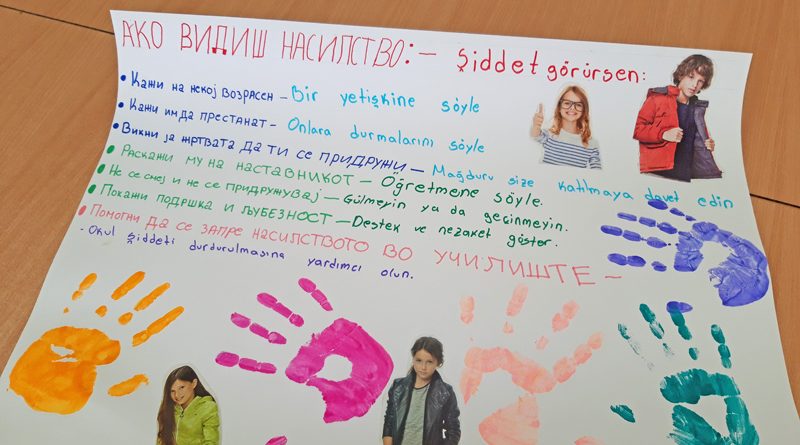 АКО ВИДИШ НАСИЛСТВО: - Şiddet görürsen:
• Кажи на некој возрасен - Bir yetişkine söyle
• Кажи им да престанат - Onlara durmalarını söyle
• Викни ја жртвата да ти се придружи - Mağduru size katılmaya davet edin
• Раскажи му на наставникот - Öğretmene söyle.
• Не се смеј и не се придружувај - Gülmeyin ya da geçinmeyin.
• Покажи подршка и љубезност - Destek ve nezaket göster.
• Помогни да се запре насилството во училиште -
- Okul şiddeti durdurulmasına yardımcı olun.